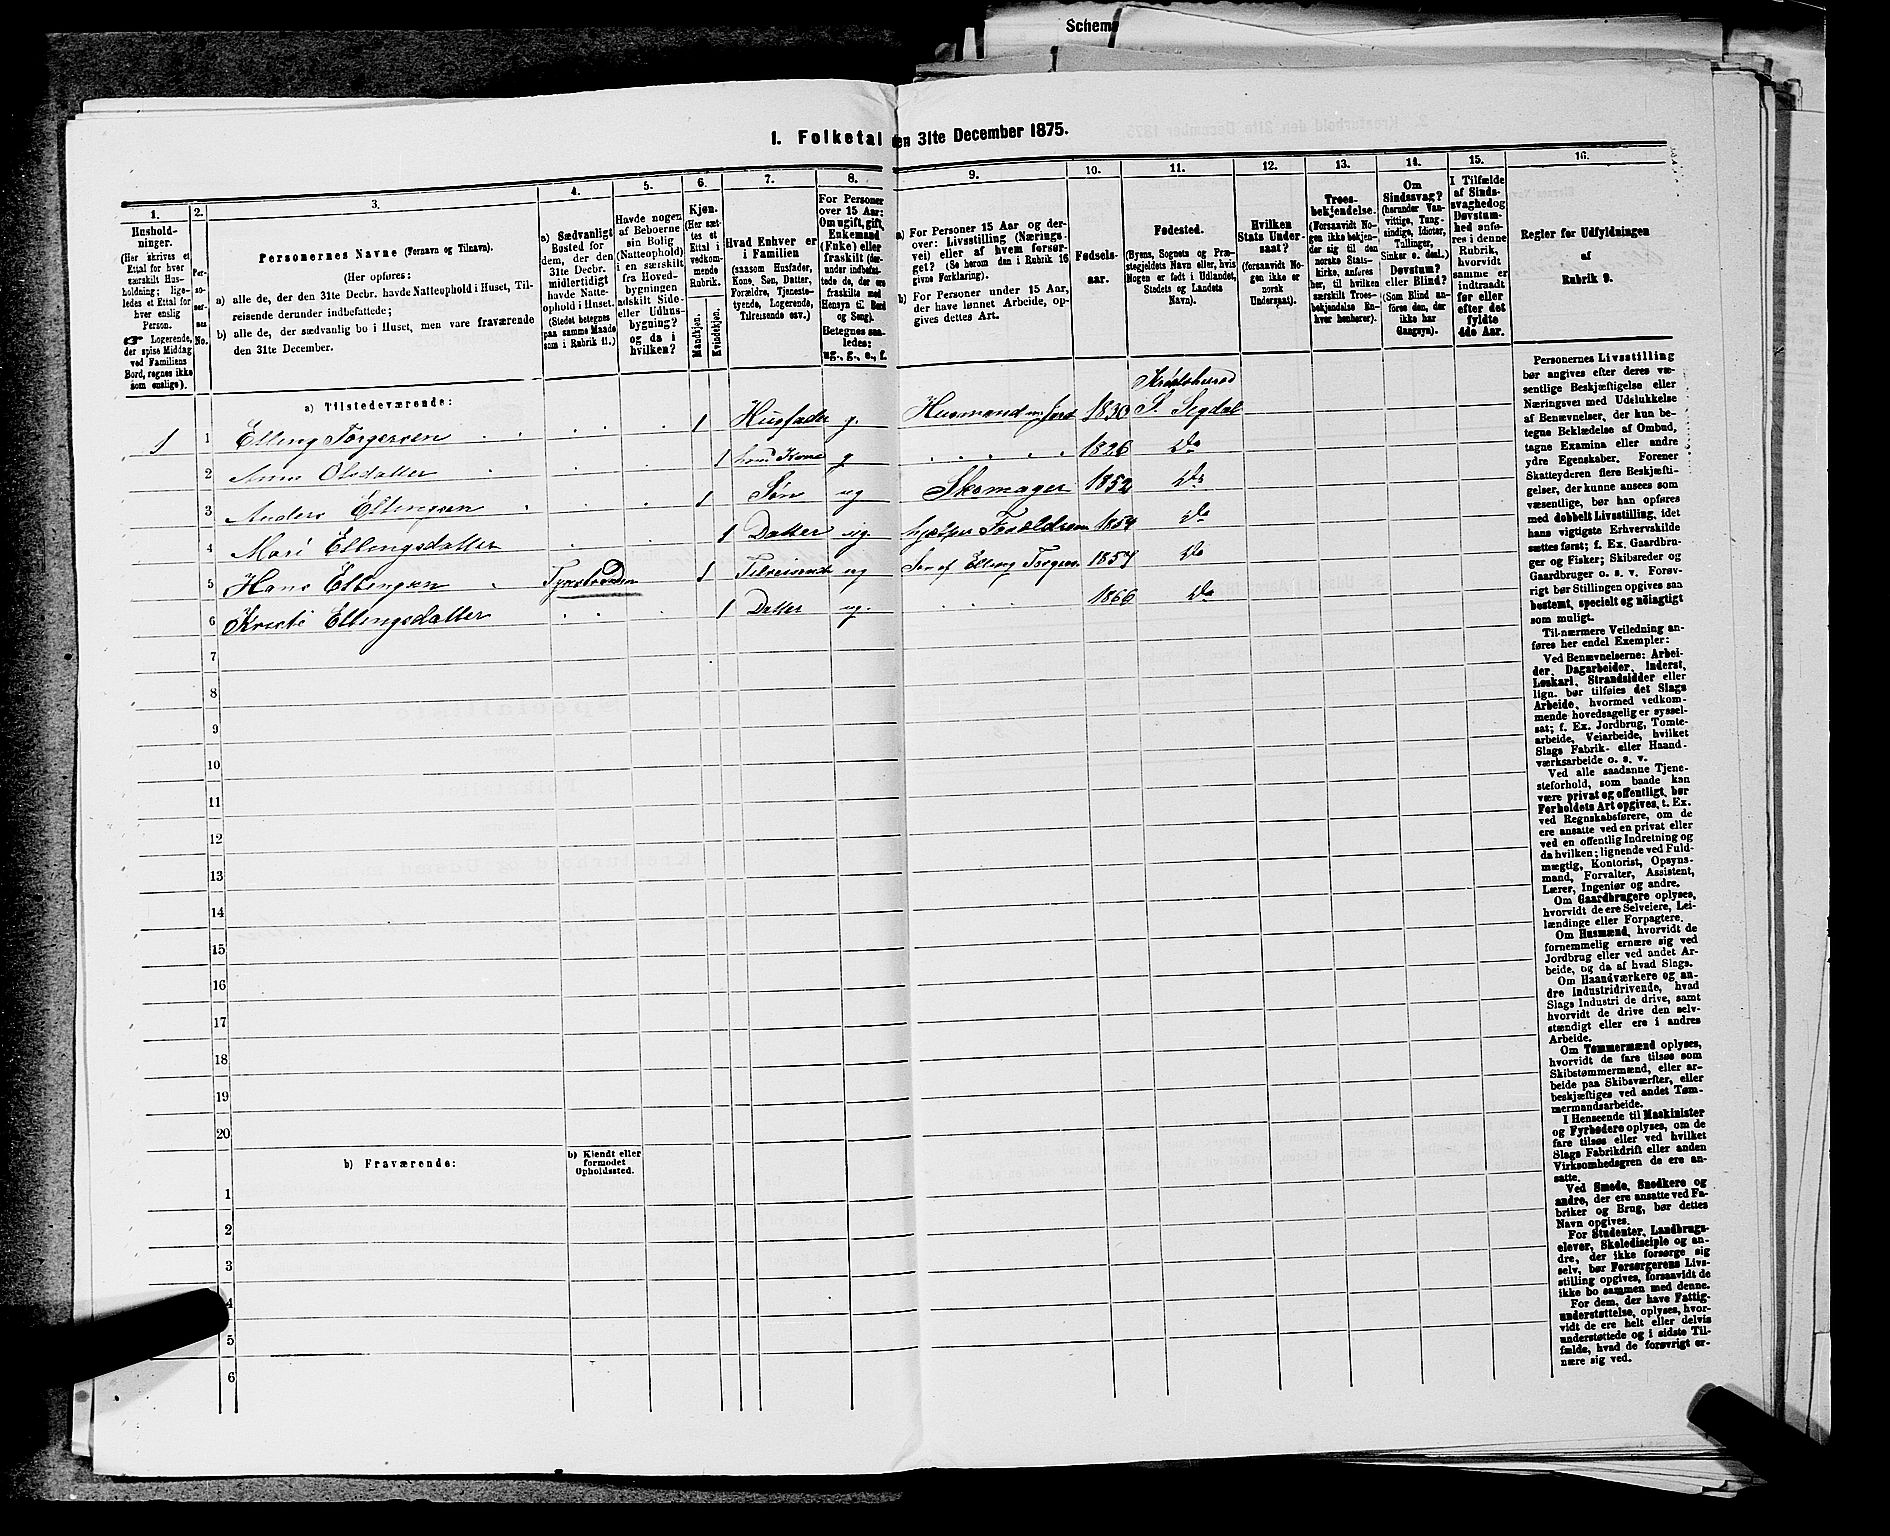 Schem
1. Folketal den 31te December 1875.
1.
Hushold-
ninger.
(Her skrives et
Ettal for hver
særskilt Hus-
holdning; lige-
ledes et Ettal for
hver enslig
Person.
☛ Logerende,
der spise Middag
ved Familiens
Bord, regnes ikke
som enslige).
2.
Per-
so-
ner-
nes
No.
3.
Personernes Navne (Fornavn og Tilnavn).
(Her opføres:
a) alle de, der den 31te Decbr. havde Natteophold i Huset, Til-
reisende derunder indbefattede;
b) alle de, der sædvanlig bo i Huset, men vare fraværende
den 31te December.
4.
a) Sædvanligt
Bosted for
dem, der den
31te Decbr.
midlertidigt
havde Natte-
ophold i Huset.
(Stedet betegnes
paa samme Maade
som i Rubrik 11.)
5.
Havde nogen
af Beboerne
sin Bolig
(Natteophold)
i en særskilt
fra Hoved-
bygningen
adskilt Side-
eller Udhus-
bygning?
og da i
hvilken?
6.
Kjøn.
(Her sæt-
tes et
Ettal i
vedkom-
mende
Rubrik.
Mandkjøn.
Kvindekjøn.
7.
Hvad Enhver er
i Familien
(saasom Husfader,
Kone, Søn, Datter,
Forældre, Tjeneste-
tyende, Logerende,
Tilreisende osv.)
8.
For Personer
over 15 Aar:
Om ugift, gift,
Enkemand
(Enke) eller
fraskilt (der-
under indbefat-
tede de, der ere
fraskilte med
Hensyn til Bord
og Seng).
Betegnes saa-
ledes:
ug., g., e., f.
9.
a) For Personer 15 Aar og der-
over: Livsstilling (Nærings-
vei) eller af hvem forsør-
get? (Se herom den i Rubrik 16
givne Forklaring).
b) For Personer under 15 Aar,
der have lønnet Arbeide, op-
gives dettes Art.
10.
Fødsels-
aar.
11.
Fødested.
(Byens, Sognets og Præ-
stegjeldets Navn eller, hvis
Nogen er født i Udlandet,
Stedets og Landets
Navn).
12.
Hvilken
Stats Under-
saat?
(forsaavidt No-
gen ikke er
norsk
Undersaat).
13.
Troes-
bekjendelse.
(Forsaavidt No-
gen ikke bekjen-
der sig til den
norske Stats-
kirke, anføres
her, til hvilken
særskilt Troes-
bekjendelse En-
hver henhører).
14.
Om
Sindssvag?
(herunder Van-
vittige, Tung-
sindige, Idioter,
Tullinger,
Sinker o. desl.)
Døvstum?
eller Blind?
(Som Blind an-
føres den, der
ikke har
Gangsyn).
15.
I Tilfælde
af Sinds-
svaghed og
Døvstum-
hed anfø-
res i denne
Rubrik,
hvorvidt
samme er
indtraadt
før eller
efter det
fyldte
4de Aar.
16.
Regler for Udfyldningen
af
Rubrik 9.
a) Tilstedeværende:
1 1 Elling Torgersen 1 Husfader g. Husmand m Jord 1830 Krødsherred S. Sigdal
2 Anne Olsdatter 1 hans Kone g 1826 Do
3 Anders Ellingsen 1 Søn ug Skomager 1852 Do
4 Mari Ellingsdatter 1 Datter ug. hjælper Forældrene 1854 Do
5 Hans Ellingsen Tyristranden 1 Tilreisende ug Søn af Elling Torgers. 1857 Do
6 Kristi Ellingsdatter 1 Datter ug. 1866 Do
7
8
9
10
11
12
13
14
15
16
17
18
19
20
b) Fraværende:
b) Kjendt eller
formodet
Opholdssted.
1
2
3
4
5
6
Personernes Livsstilling
bør angives efter deres væ-
sentlige Beskjæftigelse eller
Næringsvei med Udelukkelse
af Benævnelser, der kun be-
tegne Beklædelse af Ombud,
tagne Examina eller andre
ydre Egenskaber. Forener
Skatteyderen flere Beskjæfti-
gelser, der kunne ansees som
væsentlige, bør han opføres
med dobbelt Livsstilling, idet
hans vigtigste Erhvervskilde
sættes først; f. Ex. Gaardbru-
ger og Fisker; Skibsreder og
Gaardbruger o. s. v. Forøv-
rigt bør Stillingen opgives saa
bestemt, specielt og nøiagtigt
som muligt.
Til nærmere Veiledning an-
føres her endel Exempler:
Ved Benævnelserne: Arbei-
der, Dagarbeider, Inderst,
Løskarl, Strandsidder eller
lign. bør tilføies det Slags
Arbeide, hvormed vedkom-
mende hovedsagelig er syssel-
sat; f. Ex. Jordbrug, Tomte-
arbeide, Veiarbeide, hvilket
Slags Fabrik- eller Haand-
værksarbeide o. s. v.
Ved alle saadanne Tjene-
steforhold, som baade kan
være privat og offentligt, bør
Forholdets Art opgives, t. Ex.
ved Regnskabsførere, om de
ere ansatte ved en privat eller
ved en offentlig Indretning og
da hvilken; lignende ved Fuld-
mægtig, Kontorist, Opsyns-
mand, Forvalter, Assistent,
Lærer, Ingeniør og andre.
Om Gaardbrugere oplyses,
hvorvidt de ere Selveiere, Lei-
lændinge eller Forpagtere.
Om Husmænd, hvorvidt de
fornemmelig ernære sig ved
Jordbrug eller ved andet Ar-
beide, og da af hvad Slags.
Om Haandværkere og an-
dre Industridrivende, hvad
Slags Industri de drive, samt
hvorvidt de drive den selv-
stændigt eller ere i andres
Arbeide.
Om Tømmermænd oplyses,
hvorvidt de fare tilsøs som
Skibstømmermænd, eller ar-
beide paa Skibsværfter, eller
beskjæftiges ved andet Tøm-
mermandsarbeide.
I Henseende til Maskinister
og Fyrbødere oplyses, om de
fare tilsøs eller ved hvilket
Slags Fabrikdrift eller anden
Virksomhedsgren de ere an-
satte.
Ved Smede, Snedkere og
andre, der ere ansatte ved Fa-
briker og Brug, bør dettes
Navn opgives.
For Studenter, Landbrugs-
elever, Skoledisciple og an-
dre, der ikke forsørge sig
selv, bør Forsørgerens Livs-
stilling opgives, forsaavidt de
ikke bo sammen med denne.
For dem, der have Fattig-
understøttelse, oplyses, hvor-
vidt de ere helt eller delvis
understøttede og i sidste Til-
fælde, hvad de forøvrigt er-
nære sig ved.